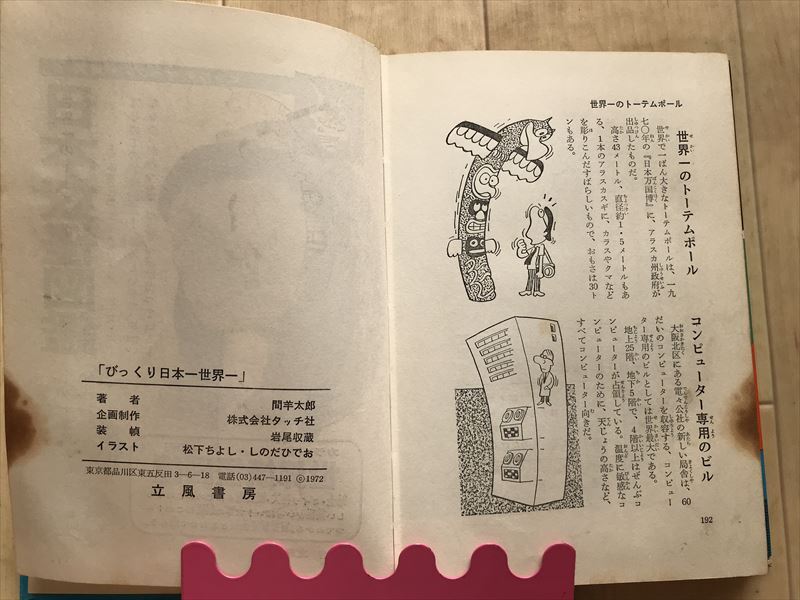 世界一のトーテムポール
世界一のトーテムポール
世界で一ばん大きなトーテムポールは、一九
七〇年の『日本万国博』に、アラスカ州政府が
出品したものだ。
高さ43メートル、直径約1・5メートルもあ
る、1本のアラスカスギに、カラスやクマなど
を彫りこんだすばらしいもので、おもさは30ト
ンもある。
コンピューター専用のビル
大阪北区にある電々公社の新しい局舎は、60
だいのコンピューターを収容する、コンピュー
ター専用のビルとしては世界最大である。
地上25階、地下5階で、4階以上はぜんぶコ
ンピューターが占領している。温度に敏感なコ
ンピューターのために、天じょうの高さなど、
すべてコンピューター向きだ。
192
「びっくり日本一世界一」
著者 間羊太郎
企画制作 株式会社タッチ社
装幀 岩尾収蔵
イラスト 松下ちよし・しのだひでお
東京都品川区東五反田3-6-18 電話(03)447-1191 ©1972
立風書房